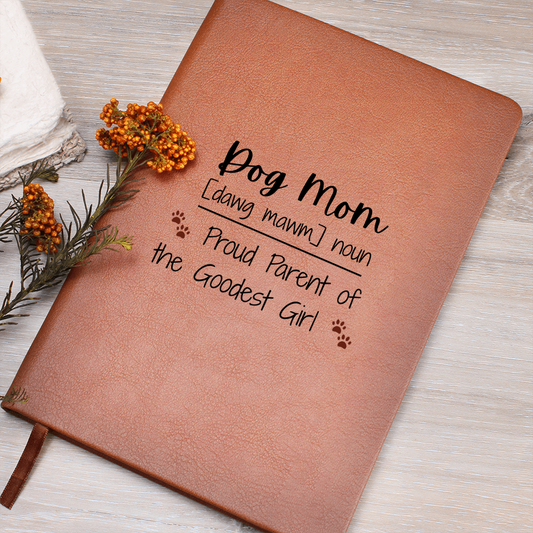 Dog Mom
[dawg mawm] noun
Proud Parent of
the Goodest Girl